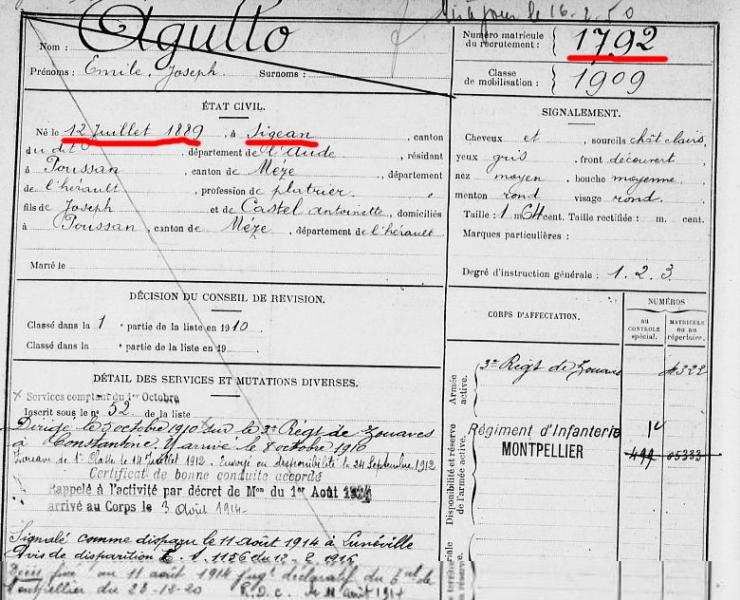 Mis à jour le 16-2-50
Nom : Agullo
Numéro matricule du recrutement : 1792
Prénoms : Emile, Joseph. Surnoms :
Classe de mobilisation : 1909
ÉTAT CIVIL.
Né le 12 Juillet 1889, à Sigean, canton
du dit, département de l'Aude, résidant
à Poussan, canton de Mèze, département
de l'hérault, profession de platrier.
fils de Joseph et de Castel Antoinette, domiciliés
à Poussan, canton de Mèze, département de l'hérault
Marié le
SIGNALEMENT.
Cheveux et sourcils chât clairs,
yeux gris, front découvert
nez moyen, bouche moyenne,
menton rond visage rond.
Taille : 1 m 64 cent. Taille rectifiée : m. cent.
Marques particulières :
Degré d'instruction générale : 1.2.3.
DÉCISION DU CONSEIL DE REVISION.
Classé dans la 1 e partie de la liste en 1910.
Classé dans la e partie de la liste en 19
CORPS D'AFFECTATION.
NUMÉROS
AU CONTROLE spécial.
MATRICULE ou au répertoire.
Armée active.
3e Régt de Zouaves 4322
Disponibilité et réserve de l'armée active.
Régiment d'Infanterie
MONTPELLIER
territoriale
DÉTAIL DES SERVICES ET MUTATIONS DIVERSES.
× Services comptant du 1er Octobre
Inscrit sous le no 52 de la liste
Dirigé le 5 octobre 1910 sur le 3e Régt de Zouaves
à Constantine. Y arrivé le 8 octobre 1910
Zouave de 1e Classe le 14 Juillet 1912. Envoyé en disponibilité le 24 Septembre 1912
Certificat de bonne conduite accordé
Rappelé à l'activité par décret de Mon du 1er Août 1914
arrivé au Corps le 3 Août 1914.
Signalé comme disparu le 11 août 1914 à Lunéville
Avis de disparition 1156 du 12-2-1915
Décès fixé au 11 août 1914 jugt déclaratif du Tnal de
Montpellier du 23-12-20 R.D.C. 11 août 1914